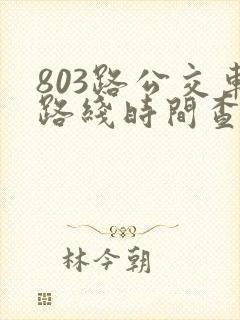 803路公交車
路綫時間查
林今朝